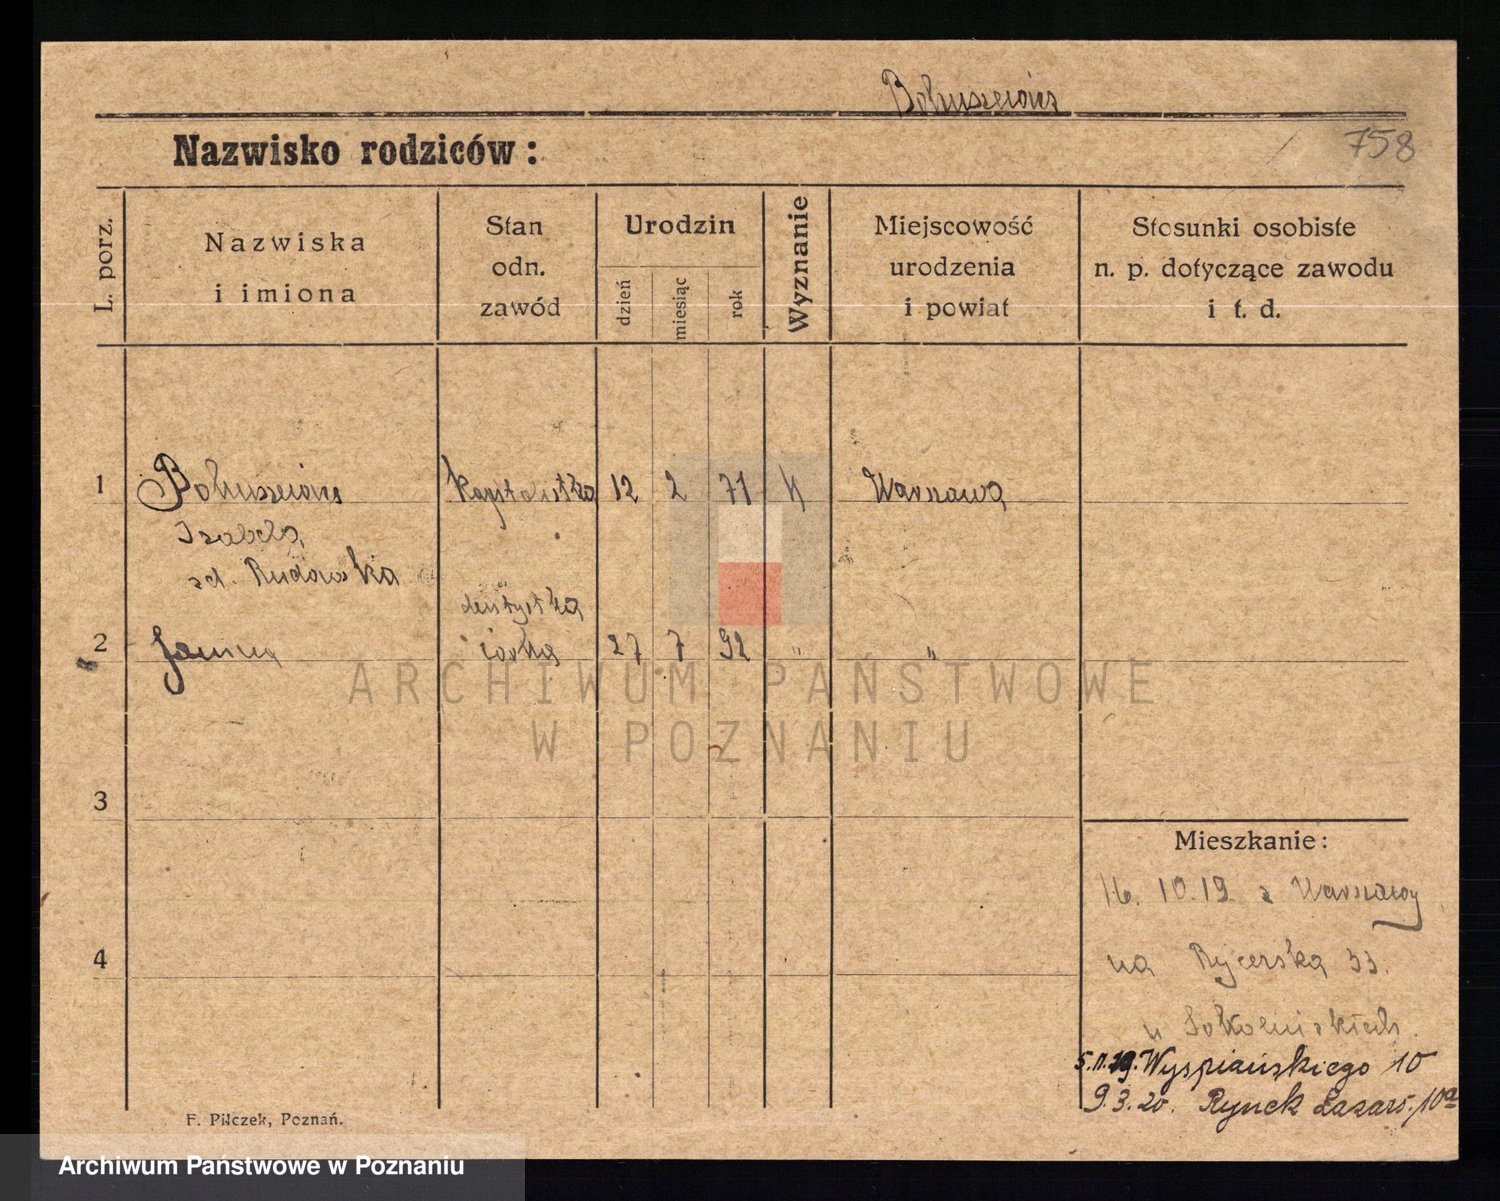 Bohuszewicz
Nazwisko rodziców:
758
L. porz.
Nazwiska
i imiona
Stan
odn.
zawód
Urodzin
dzień
miesiąc
rok
Wyznanie
Miejscowość
urodzenia
i powiat
Stosunki osobiste
n. p. dotyczące zawodu
i t. d.
1 Bohuszewicz kapitalistka 12 2 71 k Warszawa
Izabela
zd. Rudowska
dentystka
2 Janina córka 27 7 92 " "
ARCHIWUM PAŃSTWOWE
W POZNANIU
3
Mieszkanie:
16. 10. 19 z Warszawy
4
na Rycerską 33.
u Sokolnickich.
5.11.19. Wyspiańskiego 10
9.3.20. Rynek Łazars. 10a
F. Pilczek, Poznań.
Archiwum Państwowe w Poznaniu